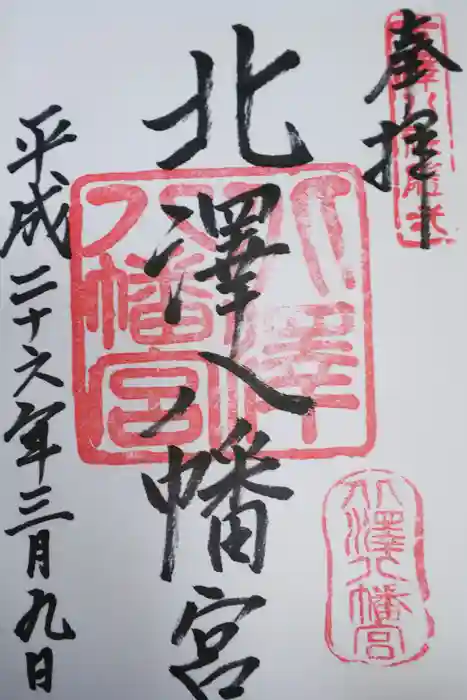 奉拝
北澤八幡宮
平成二十六年三月九日
北澤八幡宮
北澤八幡宮